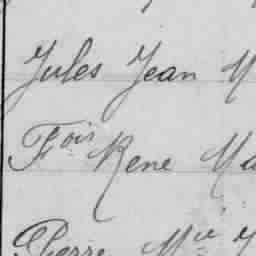 Jules Jean M
Fois Rene Ma
Pierre Mie